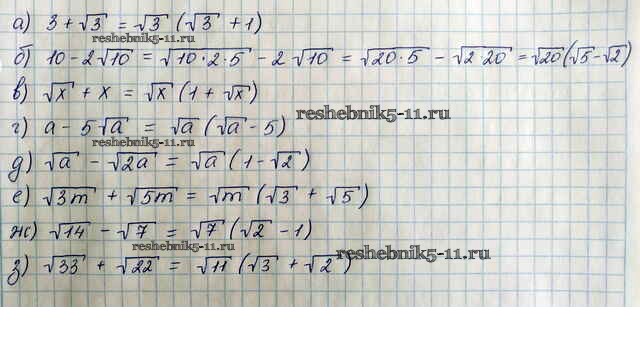 а) 3 + √3 = √3 (√3 + 1)
reshebnik5-11.ru
б) 10 - 2√10 = √10·2·5 - 2√10 = √20·5 - √2 20 = √20(√5-√2)
в) √x + x = √x (1 + √x)
reshebnik5-11.ru
г) a - 5√a = √a (√a - 5)
д) √a - √2a = √a (1-√2)
е) √3m + √5m = √m (√3 + √5)
ж) √14 - √7 = √7 (√2 - 1)
reshebnik5-11.ru
reshebnik5-11.ru
з) √33 + √22 = √11 (√3 + √2)